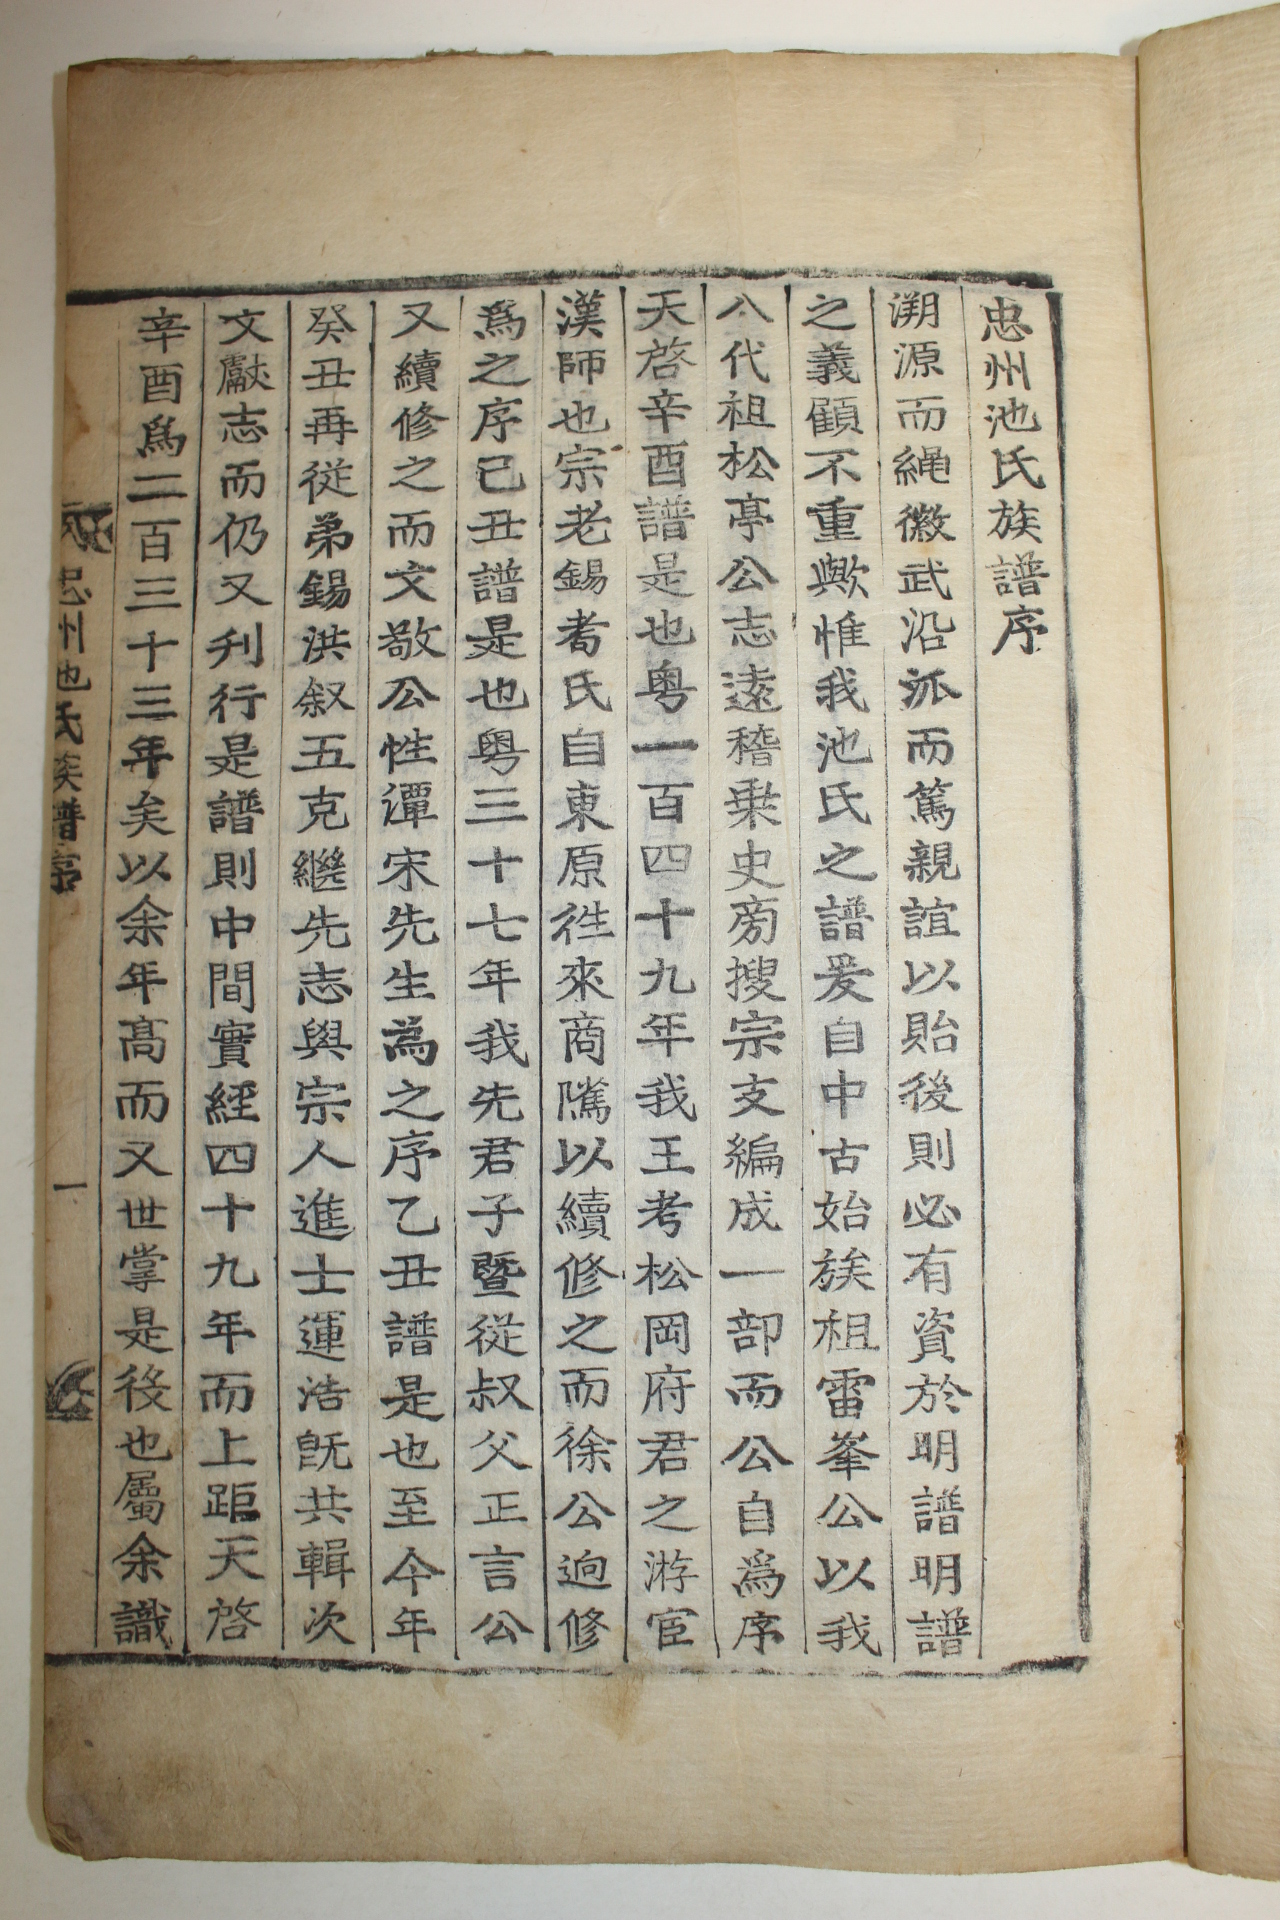 忠州池氏族譜序
溯源而繩徽武沿派而篤親誼以貽後則必有資於明譜明譜
之義顧不重歟惟我池氏之譜爰自中古始族祖雷峯公以我
八代祖松亭公志遠稽乗史旁搜宗支編成一部而公自爲序
天啓辛酉譜是也粤一百四十九年我王考松岡府君之游宦
漢師也宗老錫耉氏自東原徃來商隲以續修之而徐公逈修
爲之序己丑譜是也粤三十七年我先君子曁從叔父正言公
又續修之而文敬公性潭宋先生為之序乙丑譜是也至今年
癸丑再從弟錫洪叙五克繼先志與宗人進士運浩旣共輯次
文獻志而仍又刋行是譜則中間實經四十九年而上距天啓
辛酉爲二百三十三年矣以余年髙而又世掌是役也屬余識
忠州池氏族譜序
一